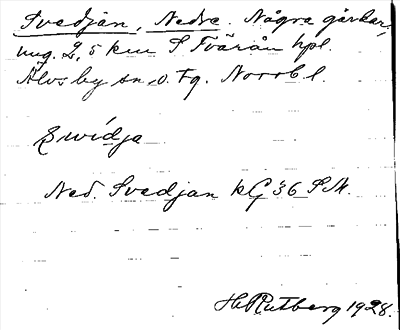 Svedjan, Nedre. Några gårdar,
ung. 2,5 km S Tvärån hpl.
Älvsby sn o. Fg. Norrb l.
Ned. Svedjan kG 36 SM.
H Rutberg 1928.